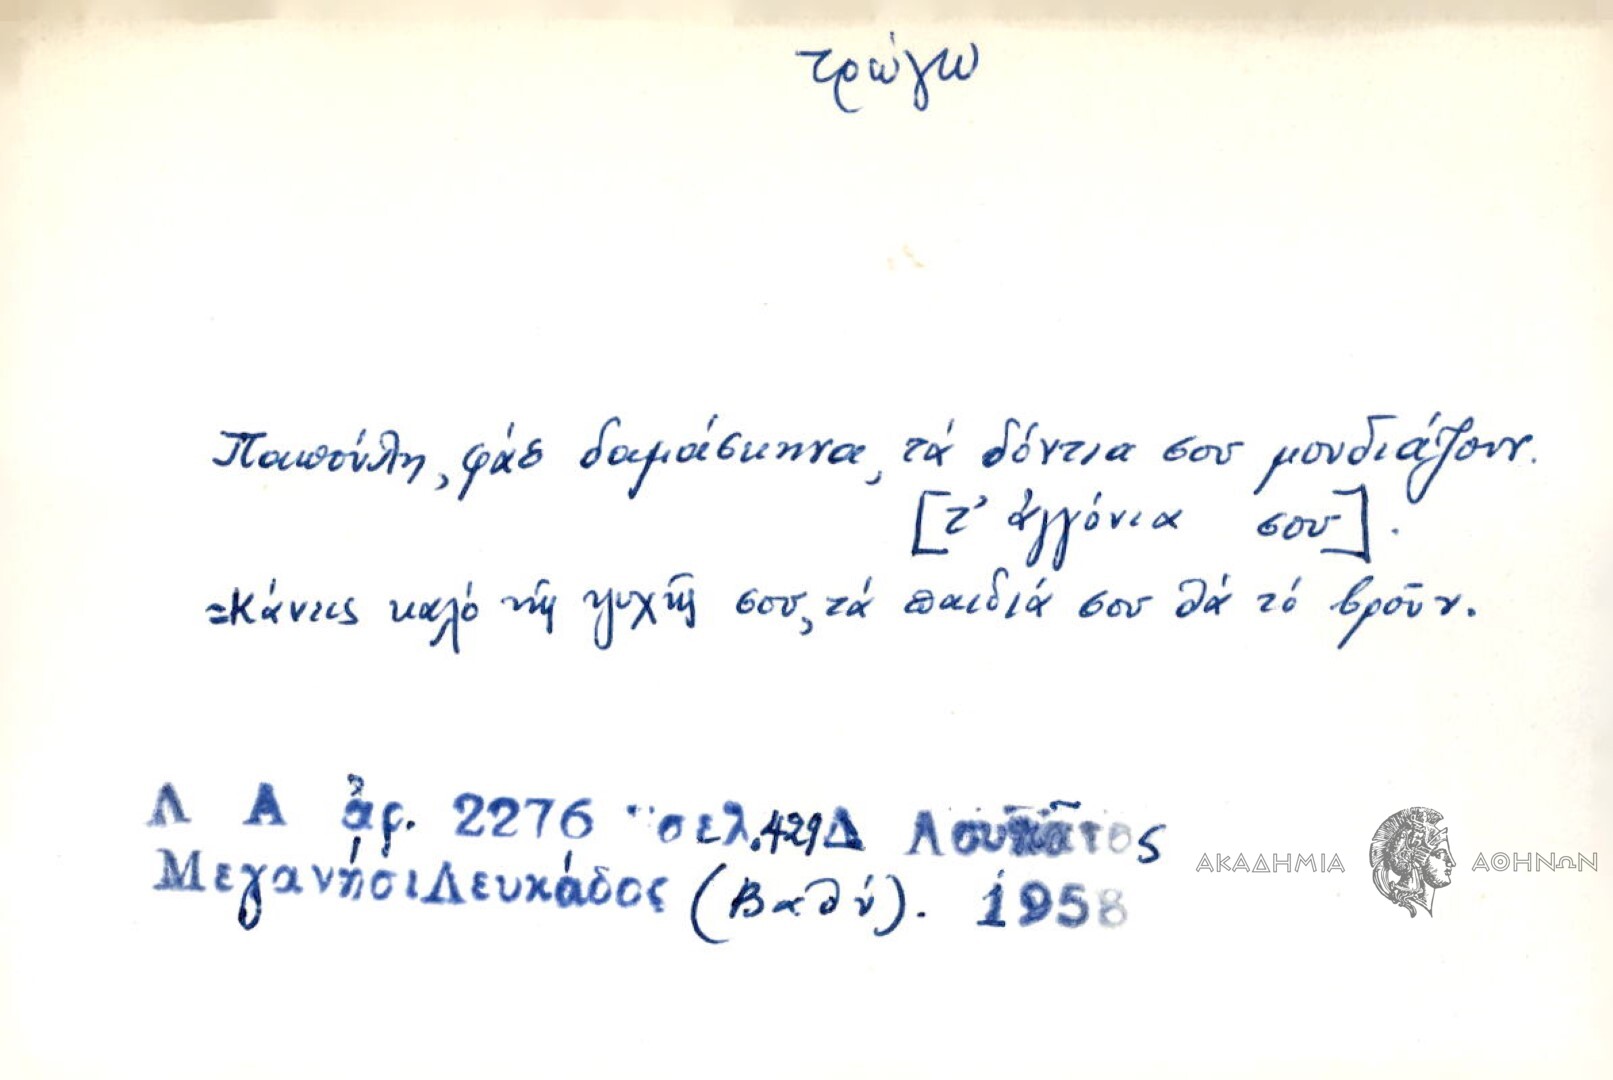 τρώγω
Παπούλη, φάε δαμάσκηνα, τά δόντια σου μουδιάζουν.
[τ' ἀγγόνια σου].
=Κάνεις καλό τῆς ψυχῆς σου, τά παιδιά σου θά τό βροῦν.
Λ Α ἀρ. 2276 σελ. 429 Δ Λουκᾶτος
Μεγανήσι Λευκάδος (Βαθύ). 1958
ΑΚΑΔΗΜΙΑ ΑΘΗΝΩΝ